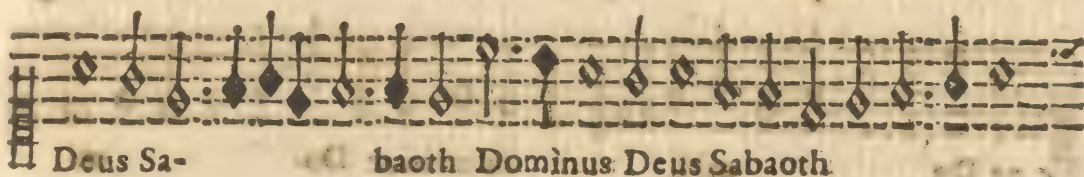 Deus Sa- baoth Dominus Deus Sabaoth